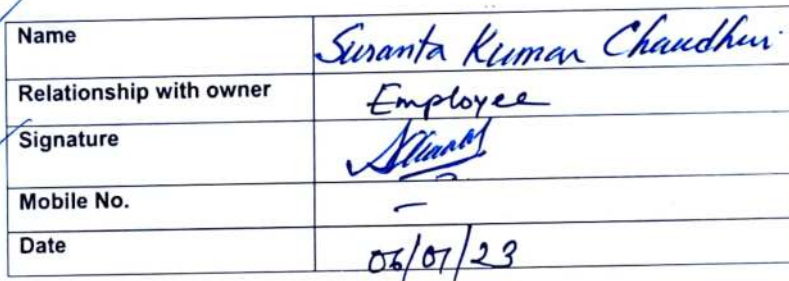 Name Suranta Kumar Chaudhuri
Relationship with owner Employee
Signature
Mobile No. –
Date 06/07/23